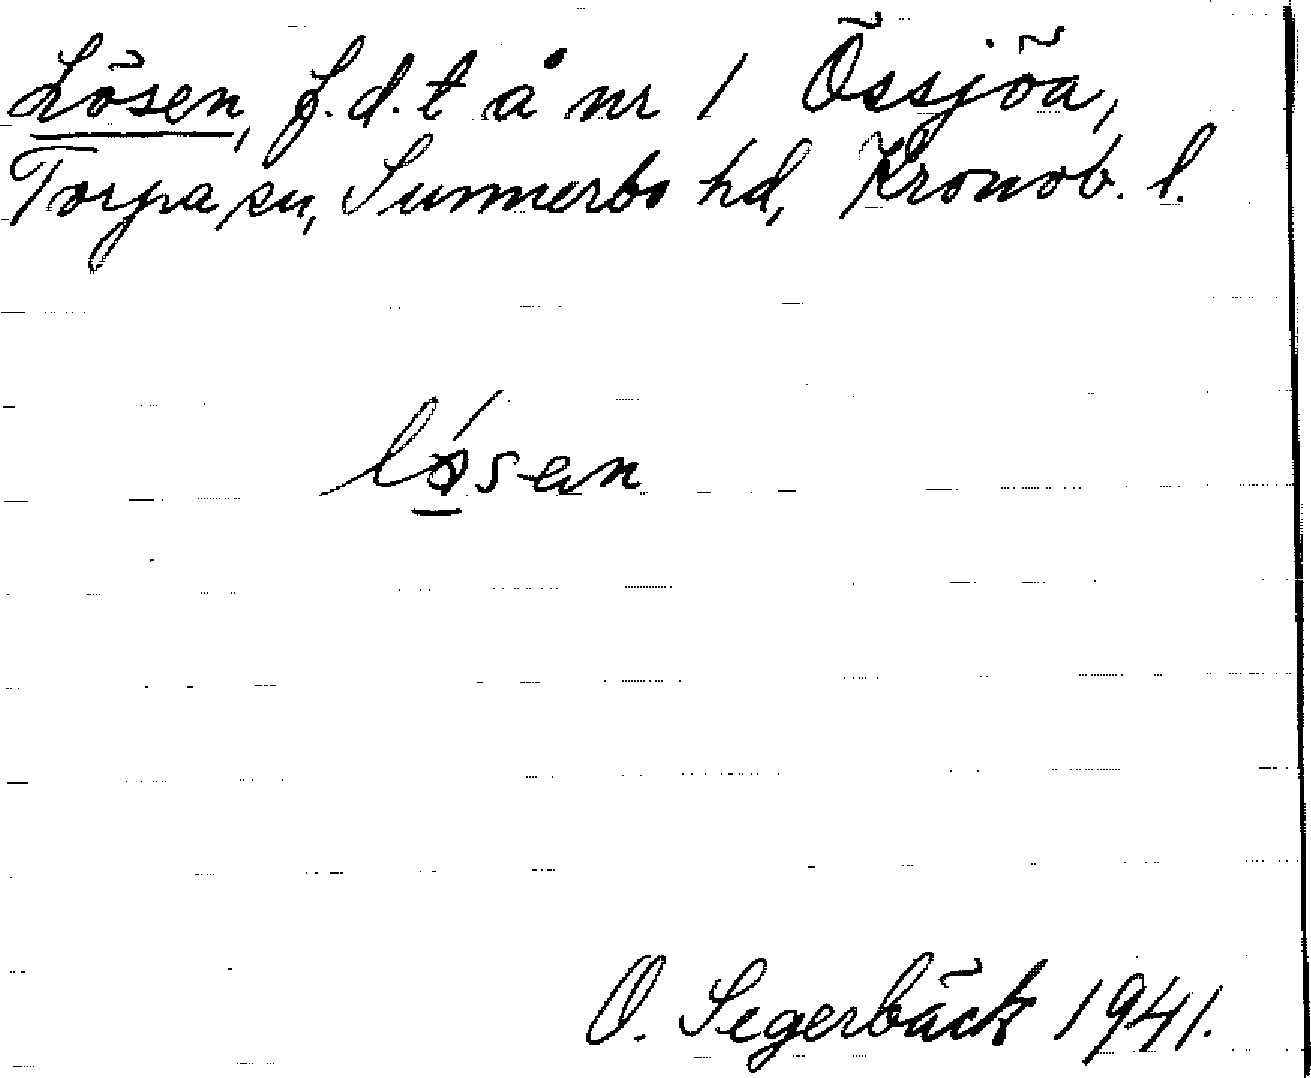 Lösen, f.d. t å nr 1 Össjöa,
Torpa sn, Sunnerbo hd, Kronob. l.
lǿsen
O. Segerbäck 1941.